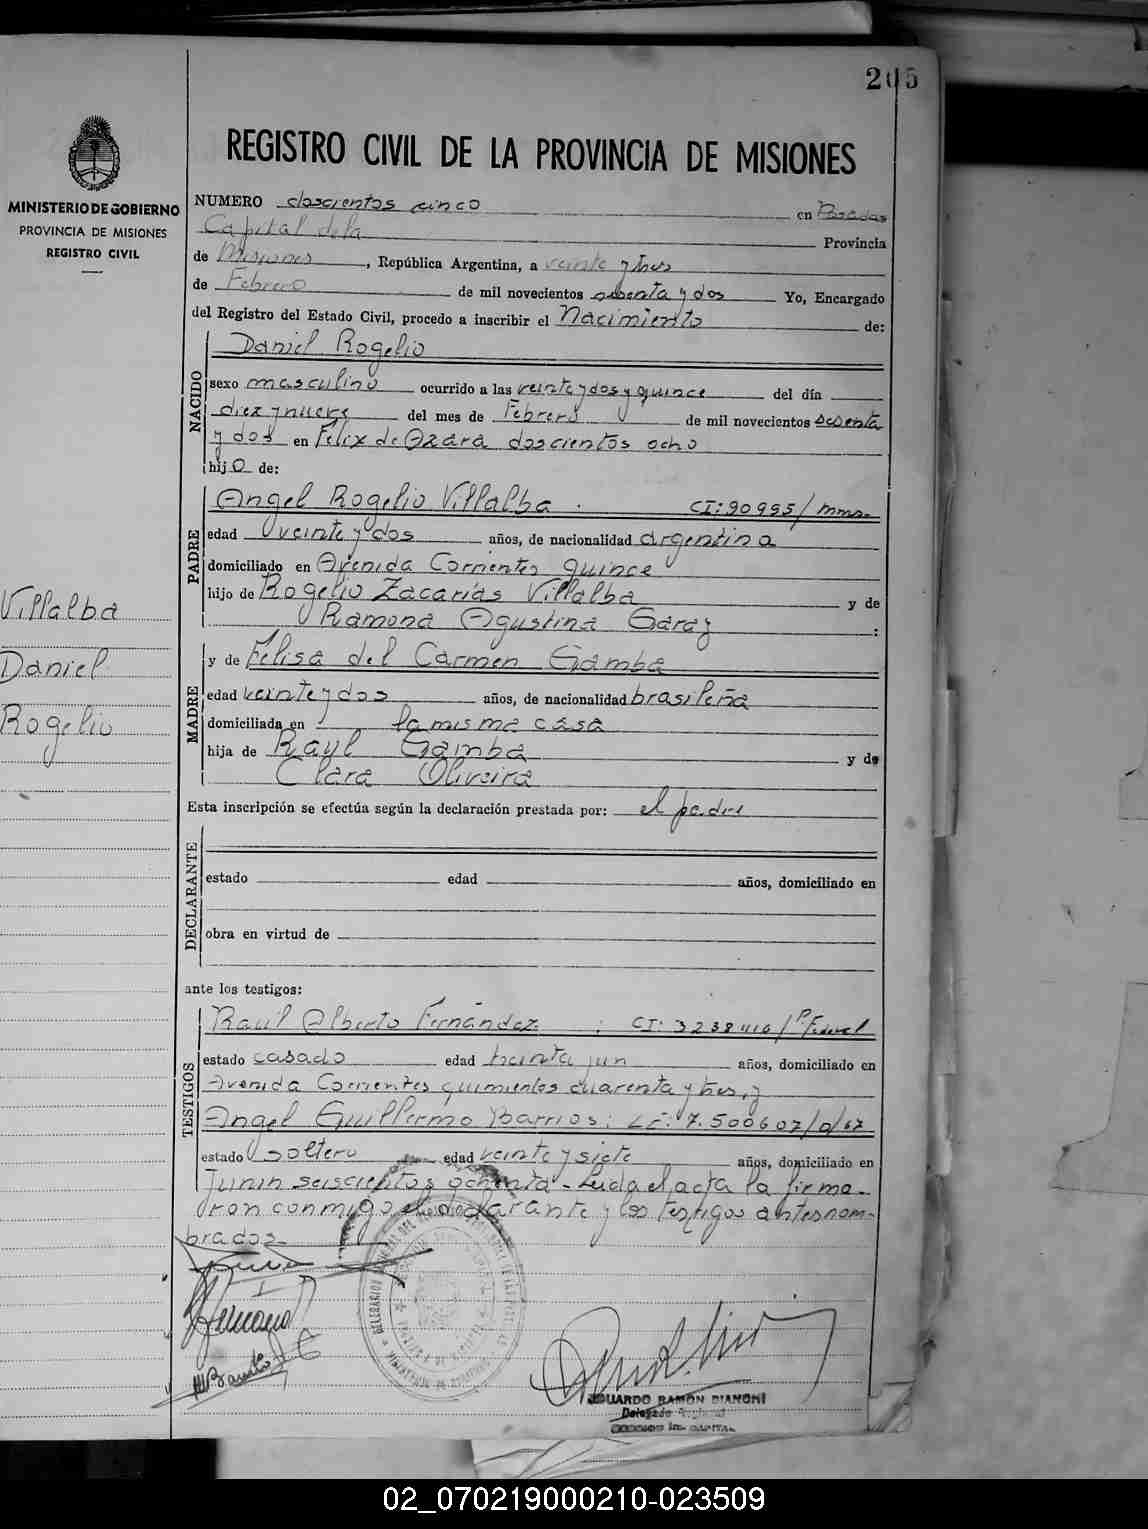 205
REGISTRO CIVIL DE LA PROVINCIA DE MISIONES
MINISTERIO DE GOBIERNO
PROVINCIA DE MISIONES
REGISTRO CIVIL
NUMERO doscientos cinco en Posadas
Capital de la Provincia
de Misiones, República Argentina, a veinte y tres
de Febrero de mil novecientos sesenta y dos Yo, Encargado
del Registro del Estado Civil, procedo a inscribir el Nacimiento de:
NACIDO
Daniel Rogelio
sexo masculino ocurrido a las veinte y dos y quince del día
diez y nueve del mes de Febrero de mil novecientos sesenta
y dos en Félix de Azara doscientos ocho
hijo de:
PADRE
Angel Rogelio Villalba. CI: 90995/mnes.
edad veinte y dos años, de nacionalidad argentina
domiciliado en Avenida Corrientes quince
hijo de Rogelio Zacarías Villalba y de
Ramona Agustina Garay :
MADRE
y de Felisa del Carmen Gamba
edad veinte y dos años, de nacionalidad brasileña
domiciliada en la misma casa
hija de Raul Gamba y de
Clara Oliveira
Villalba
Daniel
Rogelio
Esta inscripción se efectúa según la declaración prestada por: el padre
DECLARANTE
estado edad años, domiciliado en
obra en virtud de
ante los testigos:
TESTIGOS
Raúl Alberto Fernández : CI: 3238410/P. Federal
estado casado edad treinta y un años, domiciliado en
Avenida Corrientes quinientos cuarenta y tres, y
Angel Guillermo Barrios: LE: 7.500607/0/67
estado soltero edad veinte y siete años, domiciliado en
Junin seiscientos ochenta - Leida el acta la firma-
ron conmigo el declarante y los testigos antesnom-
brados -
EDUARDO RAMON BIANCHI
Delegado Regional
02_070219000210-023509